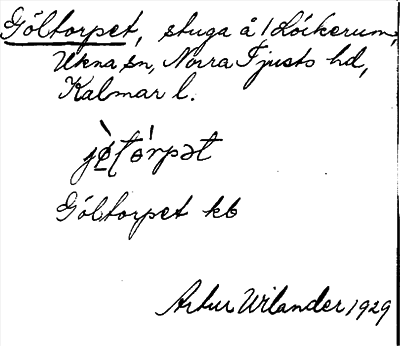 Göltorpet, stuga å 1 Lóckerum,
Ukna sn, Norra Tjusts hd,
Kalmar l.
Göltorpet kb
Artur Wilander 1929